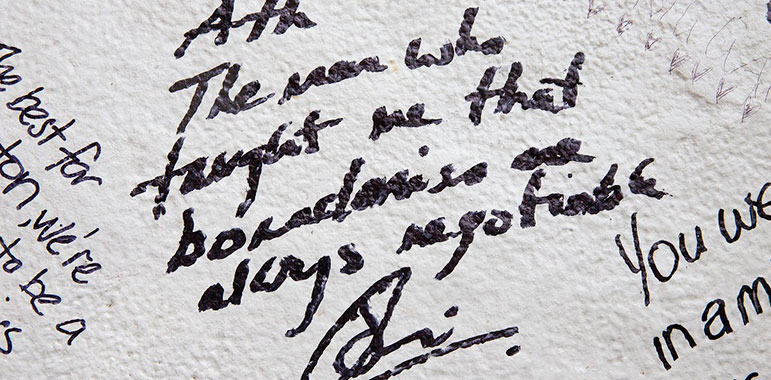 Ath
The man who
taught me that
boundaries are
always negotiable
best for
we're
to be a
is
You we
in am